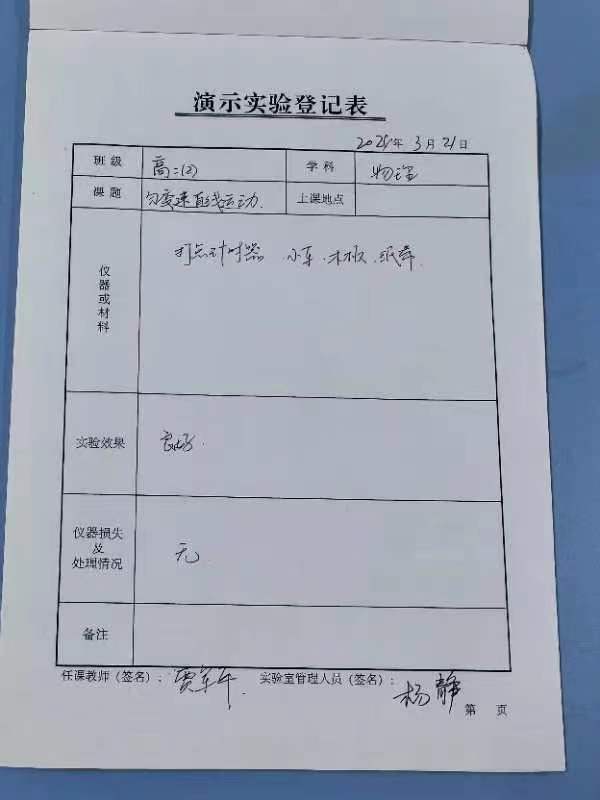 演示实验登记表
年 3月21日
班级 高二(2) 学科 物理
课题 匀变速直线运动. 上课地点
仪器或材料 打点计时器 小车、木板、纸带.
实验效果 良好.
仪器损失及处理情况 无
备注
任课教师（签名）： 实验室管理人员（签名）： 杨静
第 页